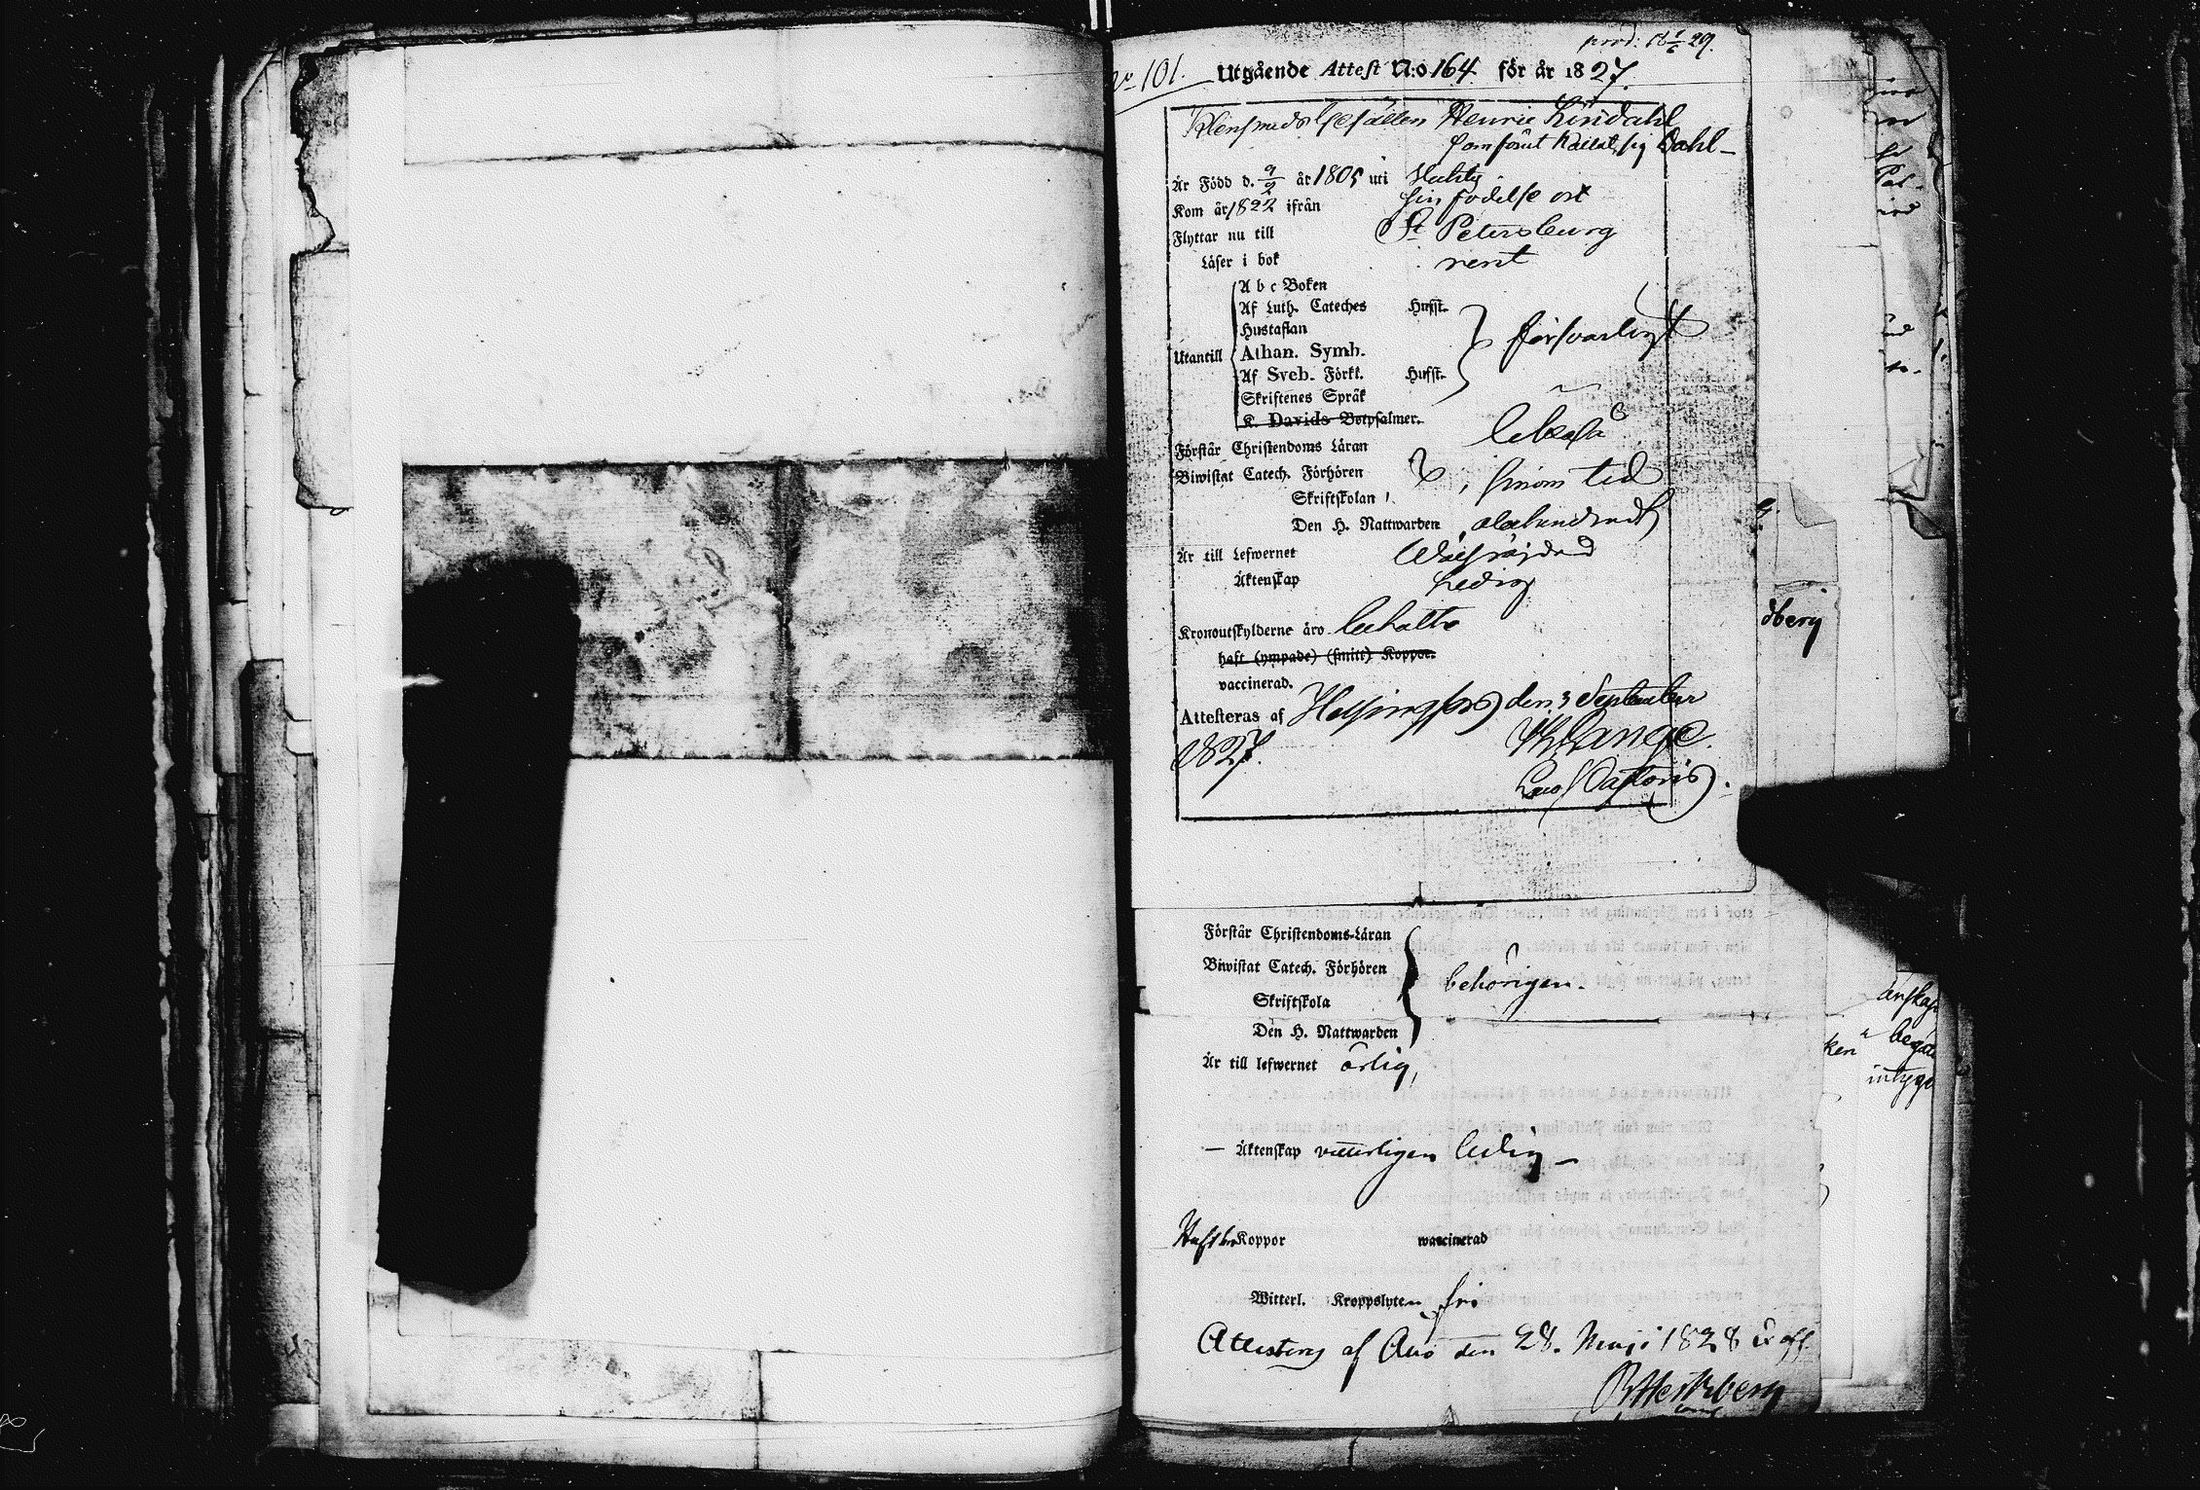 prod: 16 1/6 29.
No 101.
Utgående Attest N:o 164 för år 1827.
Klensmeds Gesällen Henric Lindahl
som förut kallat sig Dahl
Är Född d. 9/2 år 1805 uti
Kom år 1822 ifrån sin födelse ort
Flyttar nu till St Petersburg
Läser i bok rent
Utantill
A b c Boken
Af Luth. Cateches Hufst.
Hustaflan
Athan. Symb.
Af Sveb. Förkl. Hufst.
Skriftenes Språk
K. Davids Botpsalmer.
försvarligt
Förstår Christendoms Läran
Biwistat Catech. Förhören
Skriftskolan
i sinom tid
Den H. Nattwarden
Är till Lefwernet Wälfräjdad
Äktenskap Ledig
Kronoutskylderne äro betalte
haft (ympade) (smitt) Koppor.
vaccinerad.
Attesteras af Helsingfors den 3 September
1827.
Lange.
Pastoris
Förstår Christendoms-Läran
Biwistat Catech. Förhören
Skriftskola
Den H. Nattwarden
behörigen.
Är till lefwernet ärlig,
— Äktenskap vitterligen ledig —
Haft Koppor waccinerad
Witterl. Kroppslyten fri
Attesterar af Åbo den 28. Maji 1828
dberg
ken
begå
intyga